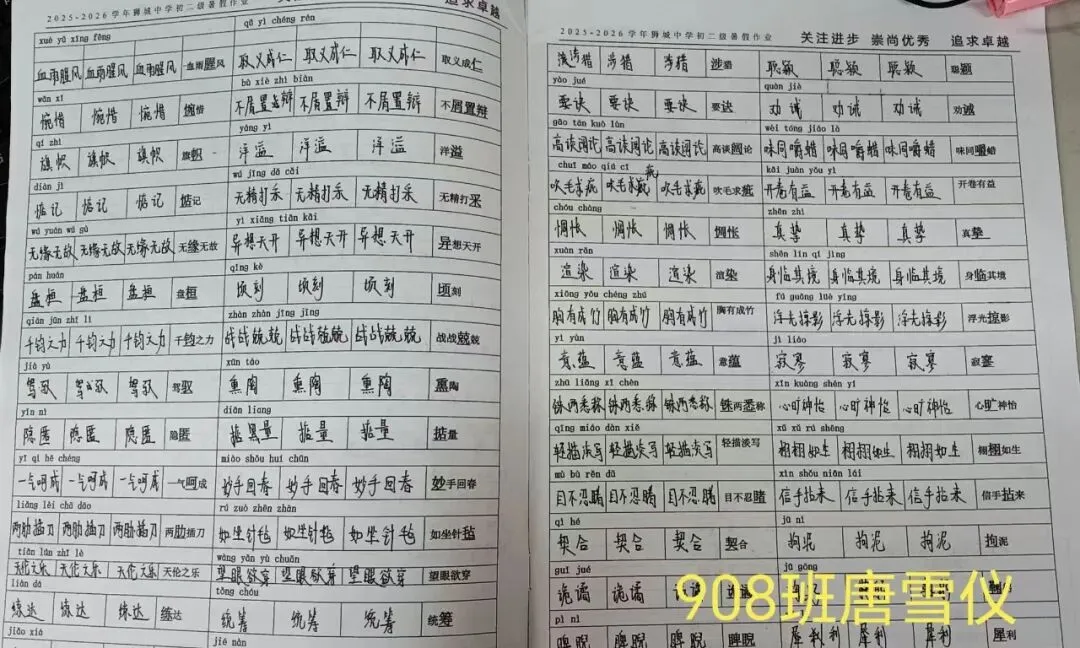 2025-2026学年狮城中学初二级暑假作业
追求卓越
xuè yǔ xīng fēng qǔ yì chéng rén
血雨腥风 血雨腥风 血雨腥风 血雨腥风 取义成仁 取义成仁 取义成仁 取义成仁
wǎn xī bù xiè zhì biàn
惋惜 惋惜 惋惜 惋惜 不屑置辩 不屑置辩 不屑置辩 不屑置辩
qí zhì yáng yì
旗帜 旗帜 旗帜 旗帜 洋溢 洋溢 洋溢 洋溢
diàn jì wú jīng dǎ cǎi
惦记 惦记 惦记 惦记 无精打采 无精打采 无精打采 无精打采
wú yuán wú gù yì xiǎng tiān kāi
无缘无故 无缘无故 无缘无故 无缘无故 异想天开 异想天开 异想天开 异想天开
pán huán qǐng kè
盘桓 盘桓 盘桓 盘桓 顷刻 顷刻 顷刻 顷刻
qiān jūn zhī lì zhàn zhàn jīng jīng
千钧之力 千钧之力 千钧之力 千钧之力 战战兢兢 战战兢兢 战战兢兢 战战兢兢
jià yù xūn táo
驾驭 驾驭 驾驭 驾驭 熏陶 熏陶 熏陶 熏陶
yǐn nì diān liang
隐匿 隐匿 隐匿 隐匿 掂量 掂量 掂量
yí qì hē chéng miào shǒu huí chūn
一气呵成 一气呵成 一气呵成 一气呵成 妙手回春 妙手回春 妙手回春 妙手回春
liǎng lèi chā dāo rú zuò zhēn zhān
两肋插刀 两肋插刀 两肋插刀 两肋插刀 如坐针毡 如坐针毡 如坐针毡 如坐针毡
tiān lún zhī lè wàng yǎn yù chuān
天伦之乐 天伦之乐 天伦之乐 天伦之乐 望眼欲穿 望眼欲穿 望眼欲穿 望眼欲穿
liàn dá tǒng chóu
练达 练达 练达 练达 统筹 统筹 统筹 统筹
jiǎo xiá jié nàn
2025-2026学年狮城中学初二级暑假作业 关注进步 崇尚优秀 追求卓越
涉猎 涉猎 聪颖 聪颖 聪颖 聪颖
yào jué quàn jiè
要诀 要诀 要诀 要诀 劝诫 劝诫 劝诫 劝诫
gāo tán kuò lùn wèi tóng jiáo là
高谈阔论 高谈阔论 高谈阔论 高谈阔论 味同嚼蜡 味同嚼蜡 味同嚼蜡 味同嚼蜡
chuī máo qiú cī kāi juàn yǒu yì
吹毛求疵 吹毛求疵 吹毛求疵 吹毛求疵 开卷有益 开卷有益 开卷有益 开卷有益
chóu chàng zhēn zhì
惆怅 惆怅 惆怅 惆怅 真挚 真挚 真挚 真挚
xuàn rǎn shēn lín qí jìng
渲染 渲染 渲染 渲染 身临其境 身临其境 身临其境 身临其境
xiōng yǒu chéng zhú fú guāng lüè yǐng
胸有成竹 胸有成竹 胸有成竹 胸有成竹 浮光掠影 浮光掠影 浮光掠影 浮光掠影
yì yùn jì liáo
意蕴 意蕴 意蕴 意蕴 寂寥 寂寥 寂寥
zhū liǎng xī chèn xīn kuàng shén yí
铢两悉称 铢两悉称 铢两悉称 铢两悉称 心旷神怡 心旷神怡 心旷神怡 心旷神怡
qīng miáo dàn xiě xǔ xǔ rú shēng
轻描淡写 轻描淡写 轻描淡写 轻描淡写 栩栩如生 栩栩如生 栩栩如生 栩栩如生
mù bù rěn dǔ xìn shǒu niān lái
目不忍睹 目不忍睹 目不忍睹 目不忍睹 信手拈来 信手拈来 信手拈来 信手拈来
qì hé jū nì
契合 契合 契合 契合 拘泥 拘泥 拘泥 拘泥
guǐ jué
诡谲 诡谲
pì nì
睥睨 睥睨 睥睨 睥睨 犀利 犀利 犀利 犀利
908班唐雪仪